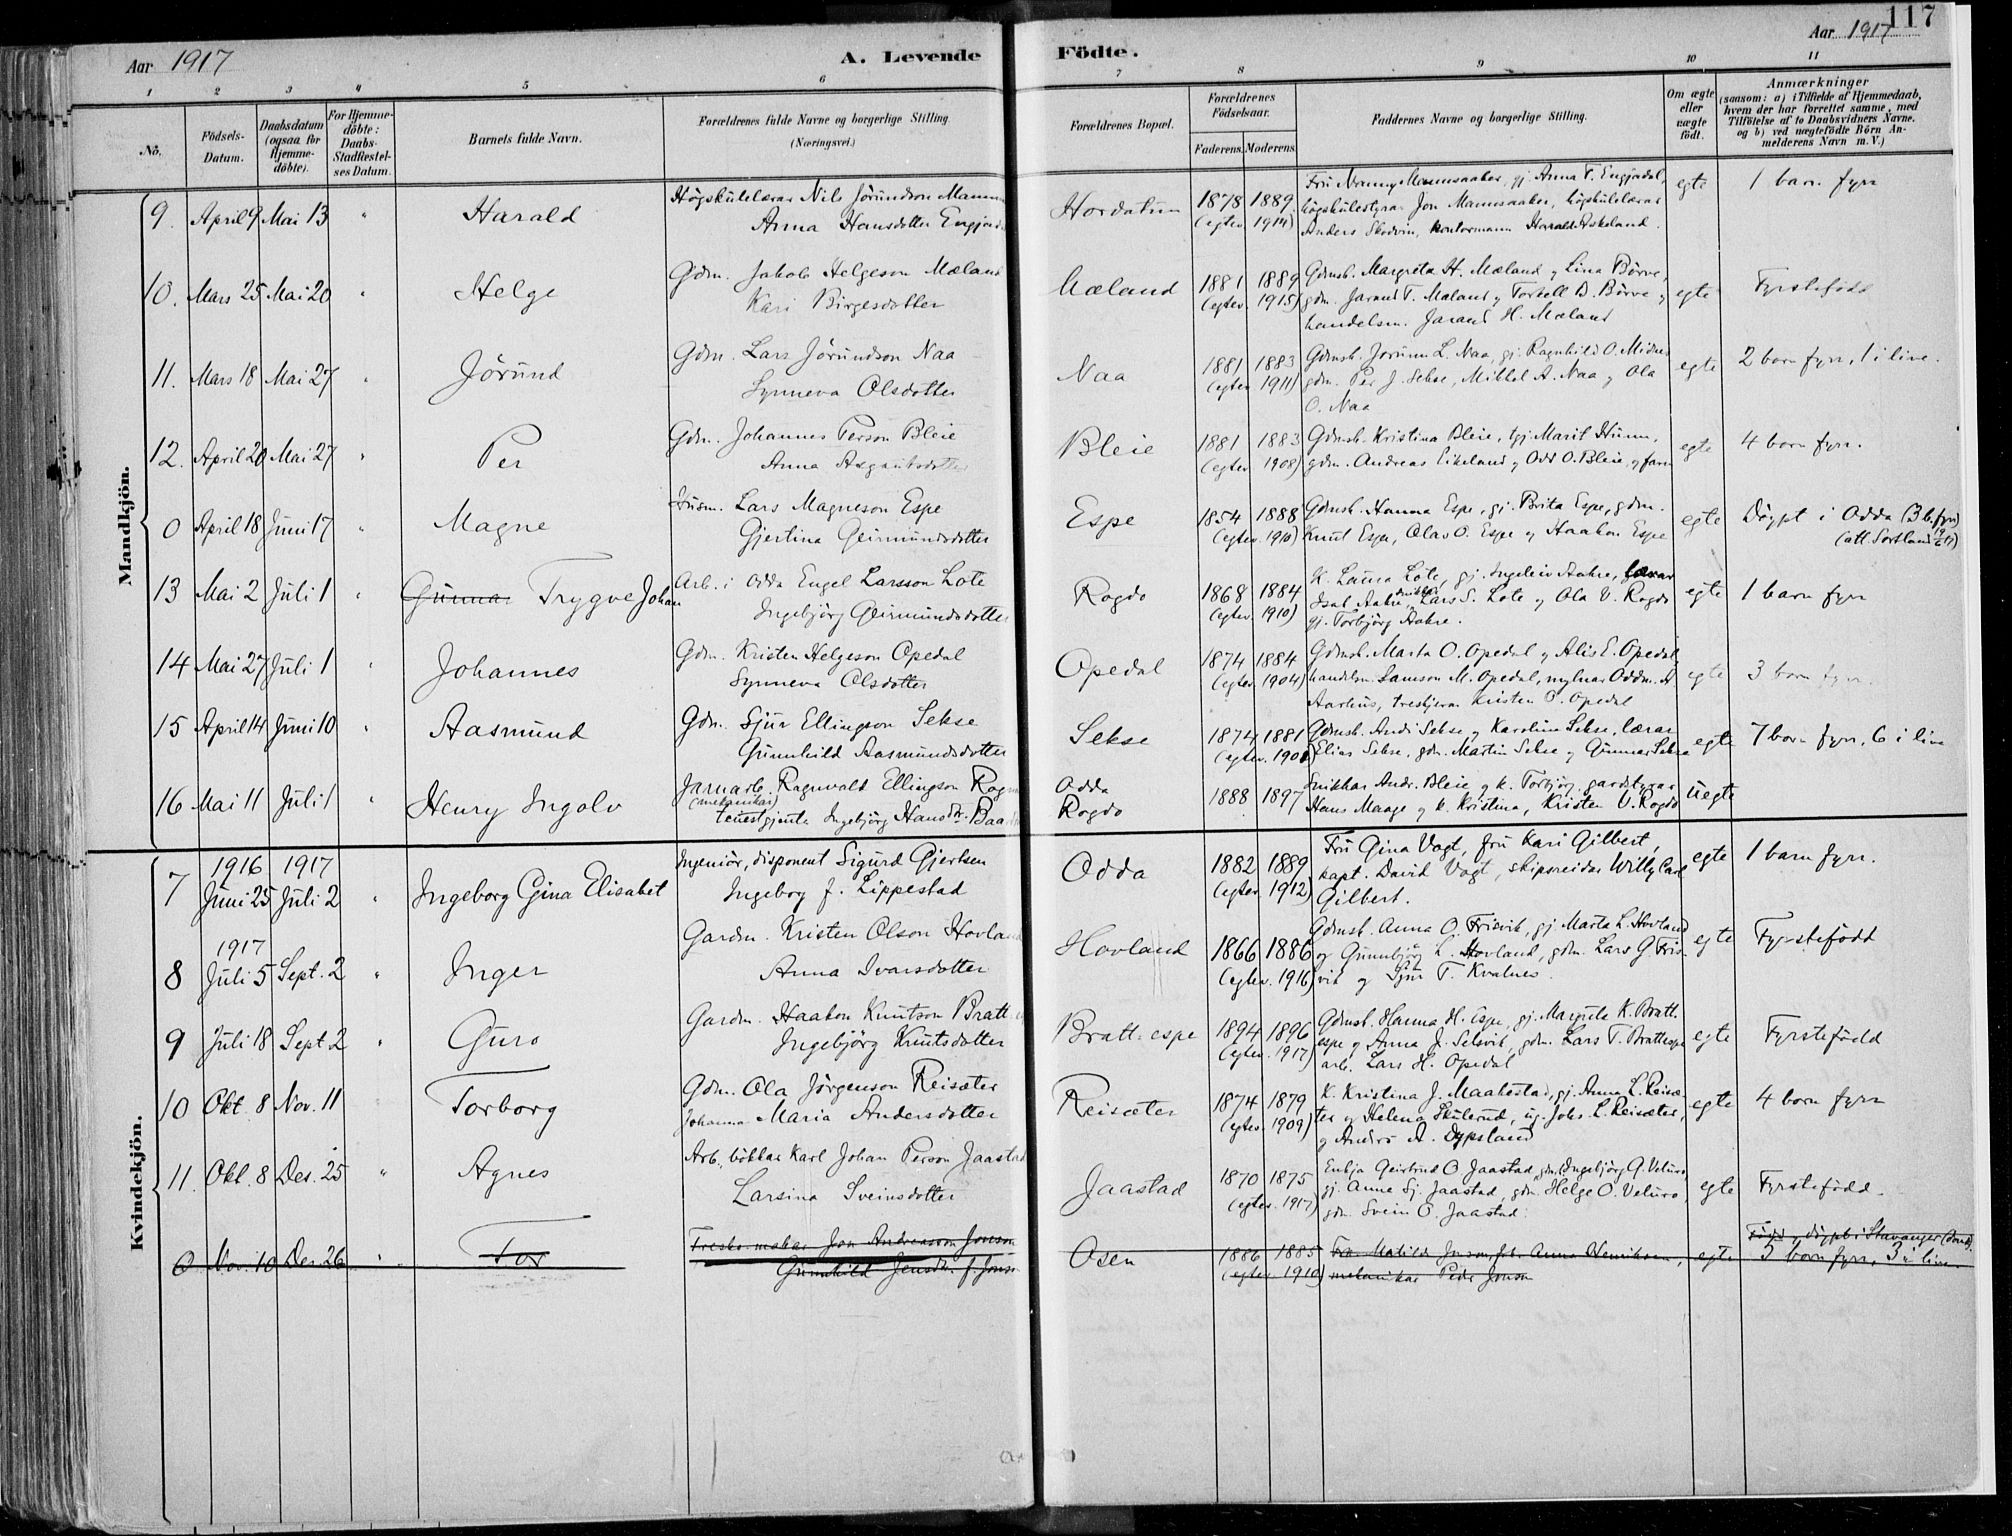 117
Aar 1917
A. Levende
Födte.
Aar 1917
1 2 3 4 5 6 7 8 9 10 11
No.
Födsels-Datum.
Daabsdatum (ogsaa for Hjemme-döbte).
For Hjemme-döbte: Daabs-Stadfæstel-ses Datum.
Barnets fulde Navn.
Forældrenes fulde Navne og borgerlige Stilling. (Næringsvei.)
Forældrenes Bopæl.
Forældrenes Födselsaar.
Faderens. Moderens.
Faddernes Navne og borgerlige Stilling.
Om ægte eller uægte födt.
Anmærkninger
(saasom: a) i Tilfælde af Hjemmedaab, hvem der har forrettet samme, med Tilföielse af to Daabsvidners Navne. og b) ved uægtefödte Börn An-melderens Navn m. V.)
Mandkjön.
9. April 9 Mai 13 " Harald
Högskulelærar Nils Jörundson Mannss
Anna Hansdotter Engjadal
Hordatun 1878 1889 (egtev. 1914)
Fru Nanny Mannsaaker, gj. Anna T. Engjadal,
högskulestyrar Jon Mannsaaker, högskulelærar
Anders Skodvin, kontormann Harald Askeland.
egte 1 barn fyrr
10. Mars 25 Mai 20 " Helge
Gdm. Jakob Helgeson Mæland
Kari Birgesdotter
Mæland 1881 1889 (egtev. 1915)
Gdmsk. Margreta H. Mæland, Lina Börve,
gdm. Jarand T. Mæland, Torkell B. Börve,
handelsm. Jarand H. Mæland
egte Fyrstefödd
11. Mars 18 Mai 27 " Jörund
Gdm. Lars Jörundson Naa
Synneva Olsdotter
Naa 1881 1883 (egtev. 1911)
Gdmsk. Jorunn L. Naa, gj. Ragnhild O. Midnes
gdm. Per J. Sekse, Mikkel A. Naa og Ola
O. Naa
egte 2 born fyrr, 1 i live.
12. April 20 Mai 27 " Per
Gdm. Johannes Person Bleie
Anna Asgautsdotter
Bleie 1881 1883 (egtev. 1908)
Gdmsk. Kristina Bleie, gj. Marit Hunn,
gdm. Andreas Eikeland, Odd O. Bleie, faren
egte 4 born fyrr.
0 April 18 Juni 17 " Magne
Husm. Lars Magneson Espe
Gjertina Geirmundsdotter
Espe 1854 1888 (egtev. 1910)
Gdmsk. Hanna Espe, gj. Brita Espe, gdm.
Knut Espe, Olav O. Espe og Haakon Espe
egte Döypt i Odda (3 b. fyrr)
13 Mai 2 Juli 1 " Gunnar Trygve Johan
Arb. i Odda Engel Larsson Lote
Ingebjörg Geirmundsdotter
Rogdo 1868 1884 (egtev. 1910)
K. Laura Lote, gj. Ingeleiv Aakre, lærar
Isak Aakre, snikkar Lars S. Lote og Ola V. Rogdo
gj. Torbjörg Aakre.
egte 1 barn fyrr
14 Mai 27 Juli 1 " Johannes
Gdm. Kristen Helgeson Opedal
Synneva Olsdotter
Opedal 1874 1884 (egtev. 1904)
Gdmsk. Marta O. Opedal og Alis E. Opedal,
handelsm. Samson M. Opedal, mylnar Oddm. A.
Aarhus, Kristen O. Opedal
egte 3 born fyrr.
15 April 14 Juni 10 " Aasmund
Gdm. Sjur Ellingson Sekse
Gunnhild Aasmundsdotter
Sekse 1874 1881
Gdmsk. Andi Sekse, Karoline Sekse, lærar
Elias Sekse, gdm. Martin Sekse og Gunnar Sekse
egte 7 born fyrr, 6 i live
16 Mai 11 Juli 1 " Henry Ingolv
Jarnarb. Ragnvald Ellingson Rog
(mekanikar)
tenestgjenta Ingebjörg Hansdtr. Baa
Odda
Rogdo
1888 1897
Snikkar Andr. Bleie og k. Torbjörg, gardstyrar
Hans Maage og k. Kristina, Kristen V. Rogdo
uegte
Kvindekjön.
1916 1917
7 Juni 25 Juli 2 " Ingeborg Gina Elisabet
Ingeniör, disponent Sigurd Gjertsen
Ingeborg f. Lippestad
Odda 1882 1889 (egtev. 1912)
Fru Gina Vogt, fru Kari Gilbert,
kapt. David Vogt, skipsreidar Willy Carl
Gilbert.
egte 1 barn fyrr.
1917
8 Juli 5 Sept. 2 " Inger
Gardm. Kristen Olson Hovland
Anna Ivarsdotter
Hovland 1866 1886 (egtev. 1916)
Gdmsk. Anna O. Frisvik, gj. Marta L. Hovland
og Gunnbjörg L. Hovland, gdm. Lars G. Fris-
vik og Sjur T. Kvalnes.
egte Fyrstefödd
9 Juli 18 Sept 2 " Guro
Gardm. Haakon Knutson Bratt-
Ingebjörg Knutsdotter
Bratt-espe 1894 1896 (egtev. 1917)
Gdmsk. Hanna H. Espe, gj. Margreta K. Bratt-
espe og Anna J. Selsvik, gdm. Lars T. Brattespe
arb. Lars H. Opedal
egte Fyrstefödd
10 Okt. 8 Nov. 11 Torborg
Gdm. Ola Jörgenson Reisæter
Johanna Maria Andersdotter
Reisæter 1874 1879 (egtev. 1909)
K. Kristina J. Maakestad, gj. Anna L. Reisæ-
ter og Helena Skulerud, ug. Johs. L. Reisæter,
og Anders A. Djupsland
egte 4 born fyrr
11. Okt. 8 Des. 25 " Agnes
Arb., bökkar Karl Johan Person Jaastad
Larsina Sveinsdotter
Jaastad 1870 1875 (egtev. 1917)
Enkja Geirtrud O. Jaastad, Ingebjörg G. Velure,
gj. Anna Sj. Jaastad, gdm. Helge O. Velure,
gdm. Svein O. Jaastad.
egte Fyrstefödd.
0 Nov. 10 Des. 26 " Tor
Tresko-makar Jon Andreasson Jonson
Gunnhild Jensdtr. f. Jons
Osen 1886 1885 (egtev. 1910)
Fru Matild Jonson, frk. Anna Henriksen,
mekanikar Peder Jonson
egte
Född og döypt i Stavanger
3 born fyrr, 3 i live.